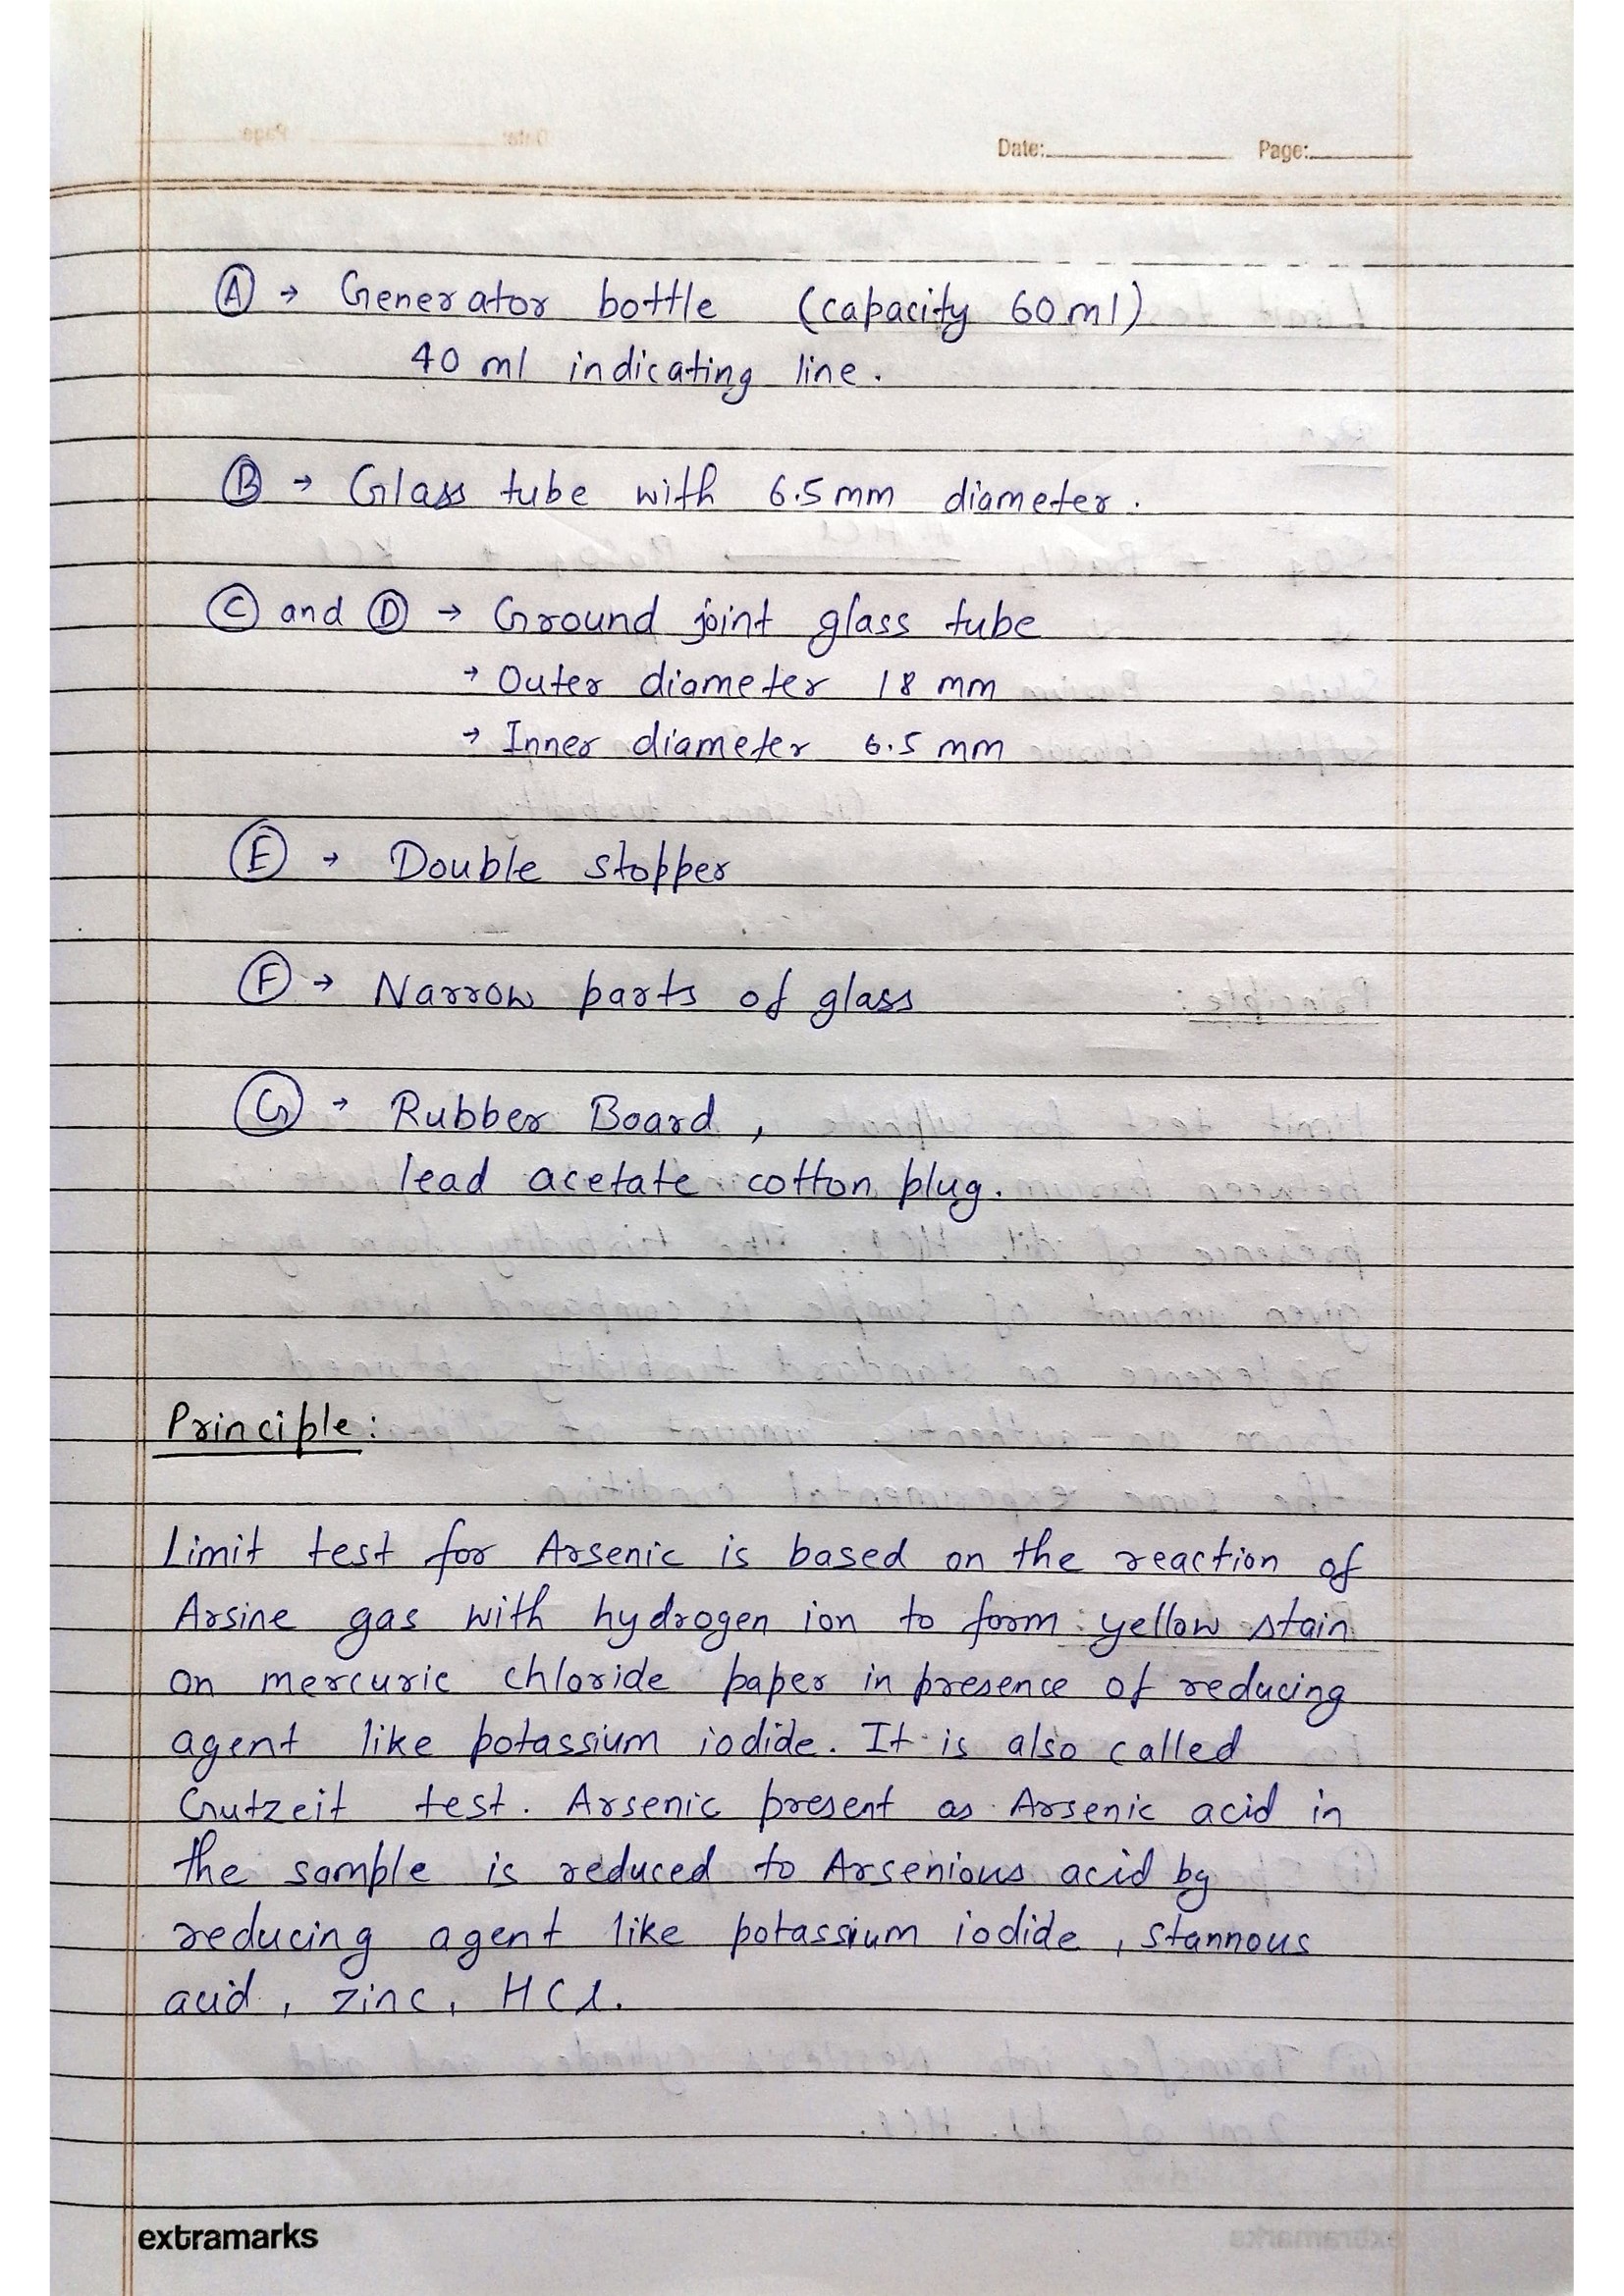 Date: Page:
Ⓐ → Generator bottle (capacity 60 ml)
40 ml indicating line.
Ⓑ → Glass tube with 6.5 mm diameter.
Ⓒ and Ⓓ → Ground joint glass tube
→ Outer diameter 18 mm
→ Inner diameter 6.5 mm
Ⓔ → Double stopper
Ⓕ → Narrow parts of glass
Ⓖ → Rubber Board,
lead acetate cotton plug.
Principle:
Limit test for Arsenic is based on the reaction of
Arsine gas with hydrogen ion to form yellow stain
on mercuric chloride paper in presence of reducing
agent like potassium iodide. It is also called
Gutzeit test. Arsenic present as Arsenic acid in
the sample is reduced to Arsenious acid by
reducing agent like potassium iodide, stannous
acid, zinc, HCl.
extramarks